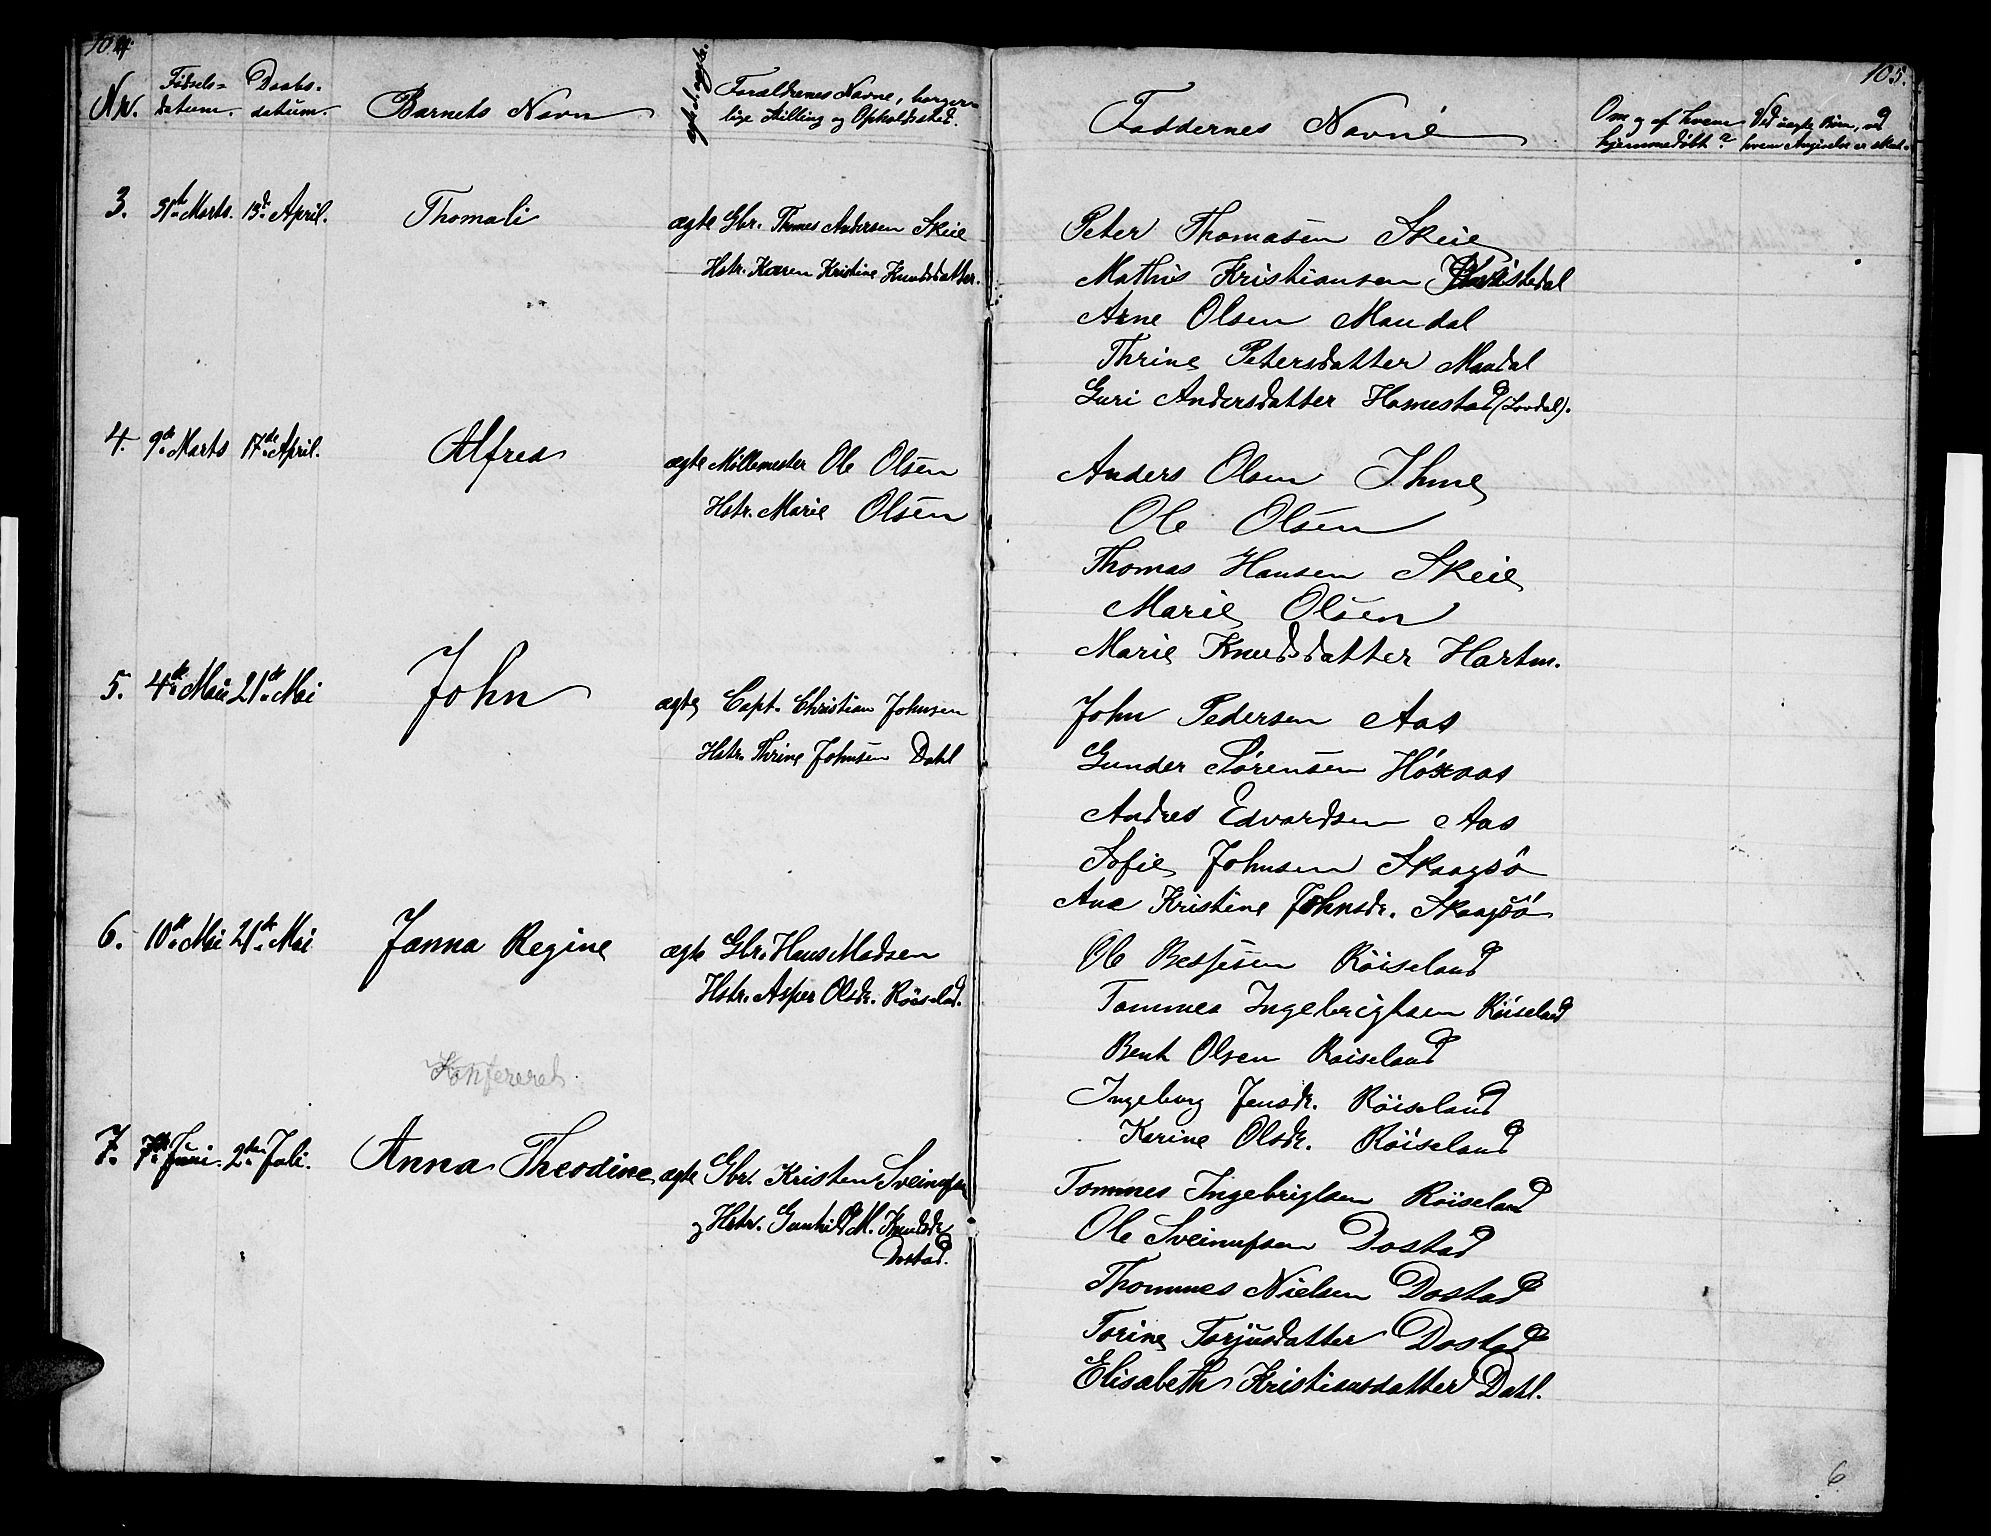 104.
Nr. Fødsels-datum. Daabs-datum. Barnets Navn ægte l. uægte. Forældrenes Navne, borgerlige Stilling og Opholdssted.
3. 31te Marts. 13de April. Thomali ægte Gbr. Thomas Andersen Skeie
Hstr. Karen Kristine Knudsdatter.
4. 9de Marts 17de April. Alfred ægte Møllemester Ole Olsen
Hstr. Marie Olsen
5. 4de Mai 21de Mai John ægte Capt. Christian Johnsen
Hstr. Thrine Johnsen Dahl
6. 10de Mai 21de Mai Janna Regine ægte Gbr. Hans Madsen
Hstr. Asper Olsdr. Röiseland.
Konfereret.
7. 7de Juni. 2den Juli. Anna Theodine ægte Gbr. Kristen Sveinufsen
og Hstr. Gunhild M. Knudsdr
Dostad.
105.
Faddernes Navne Om og af hvem hjemmedøbt? Ved uægte Børn, ved hvem Angivelse er skeet.
Peter Thomasen Skeie
Mathis Kristiansen
Arne Olsen Mandal
Thrine Petersdatter Mandal
Guri Andersdatter Hamestad (Lovdal).
Anders Olsen Ihme
Ole Olsen
Thomas Hansen Skeie
Marie Olsen
Marie Knudsdatter Hartm.
John Pedersen Aas
Gunder Sørensen
Andres Edvardsen Aas
Sofie Johnsen Skaagsö
Ane Kristine Johnsdr. Skaagsö
Ole Röiseland
Tommes Ingebrigtsen Röiseland
Bent Olsen Röiseland
Ingeborg Jensdr. Röiseland
Karine Olsdr. Röiseland
Tommes Ingebrigtsen Röiseland
Ole Sveinufsen Dostad
Thommes Nielsen Dostad
Torine Torjusdatter Dostad
Elisabeth Kristiansdatter Dahl.
6